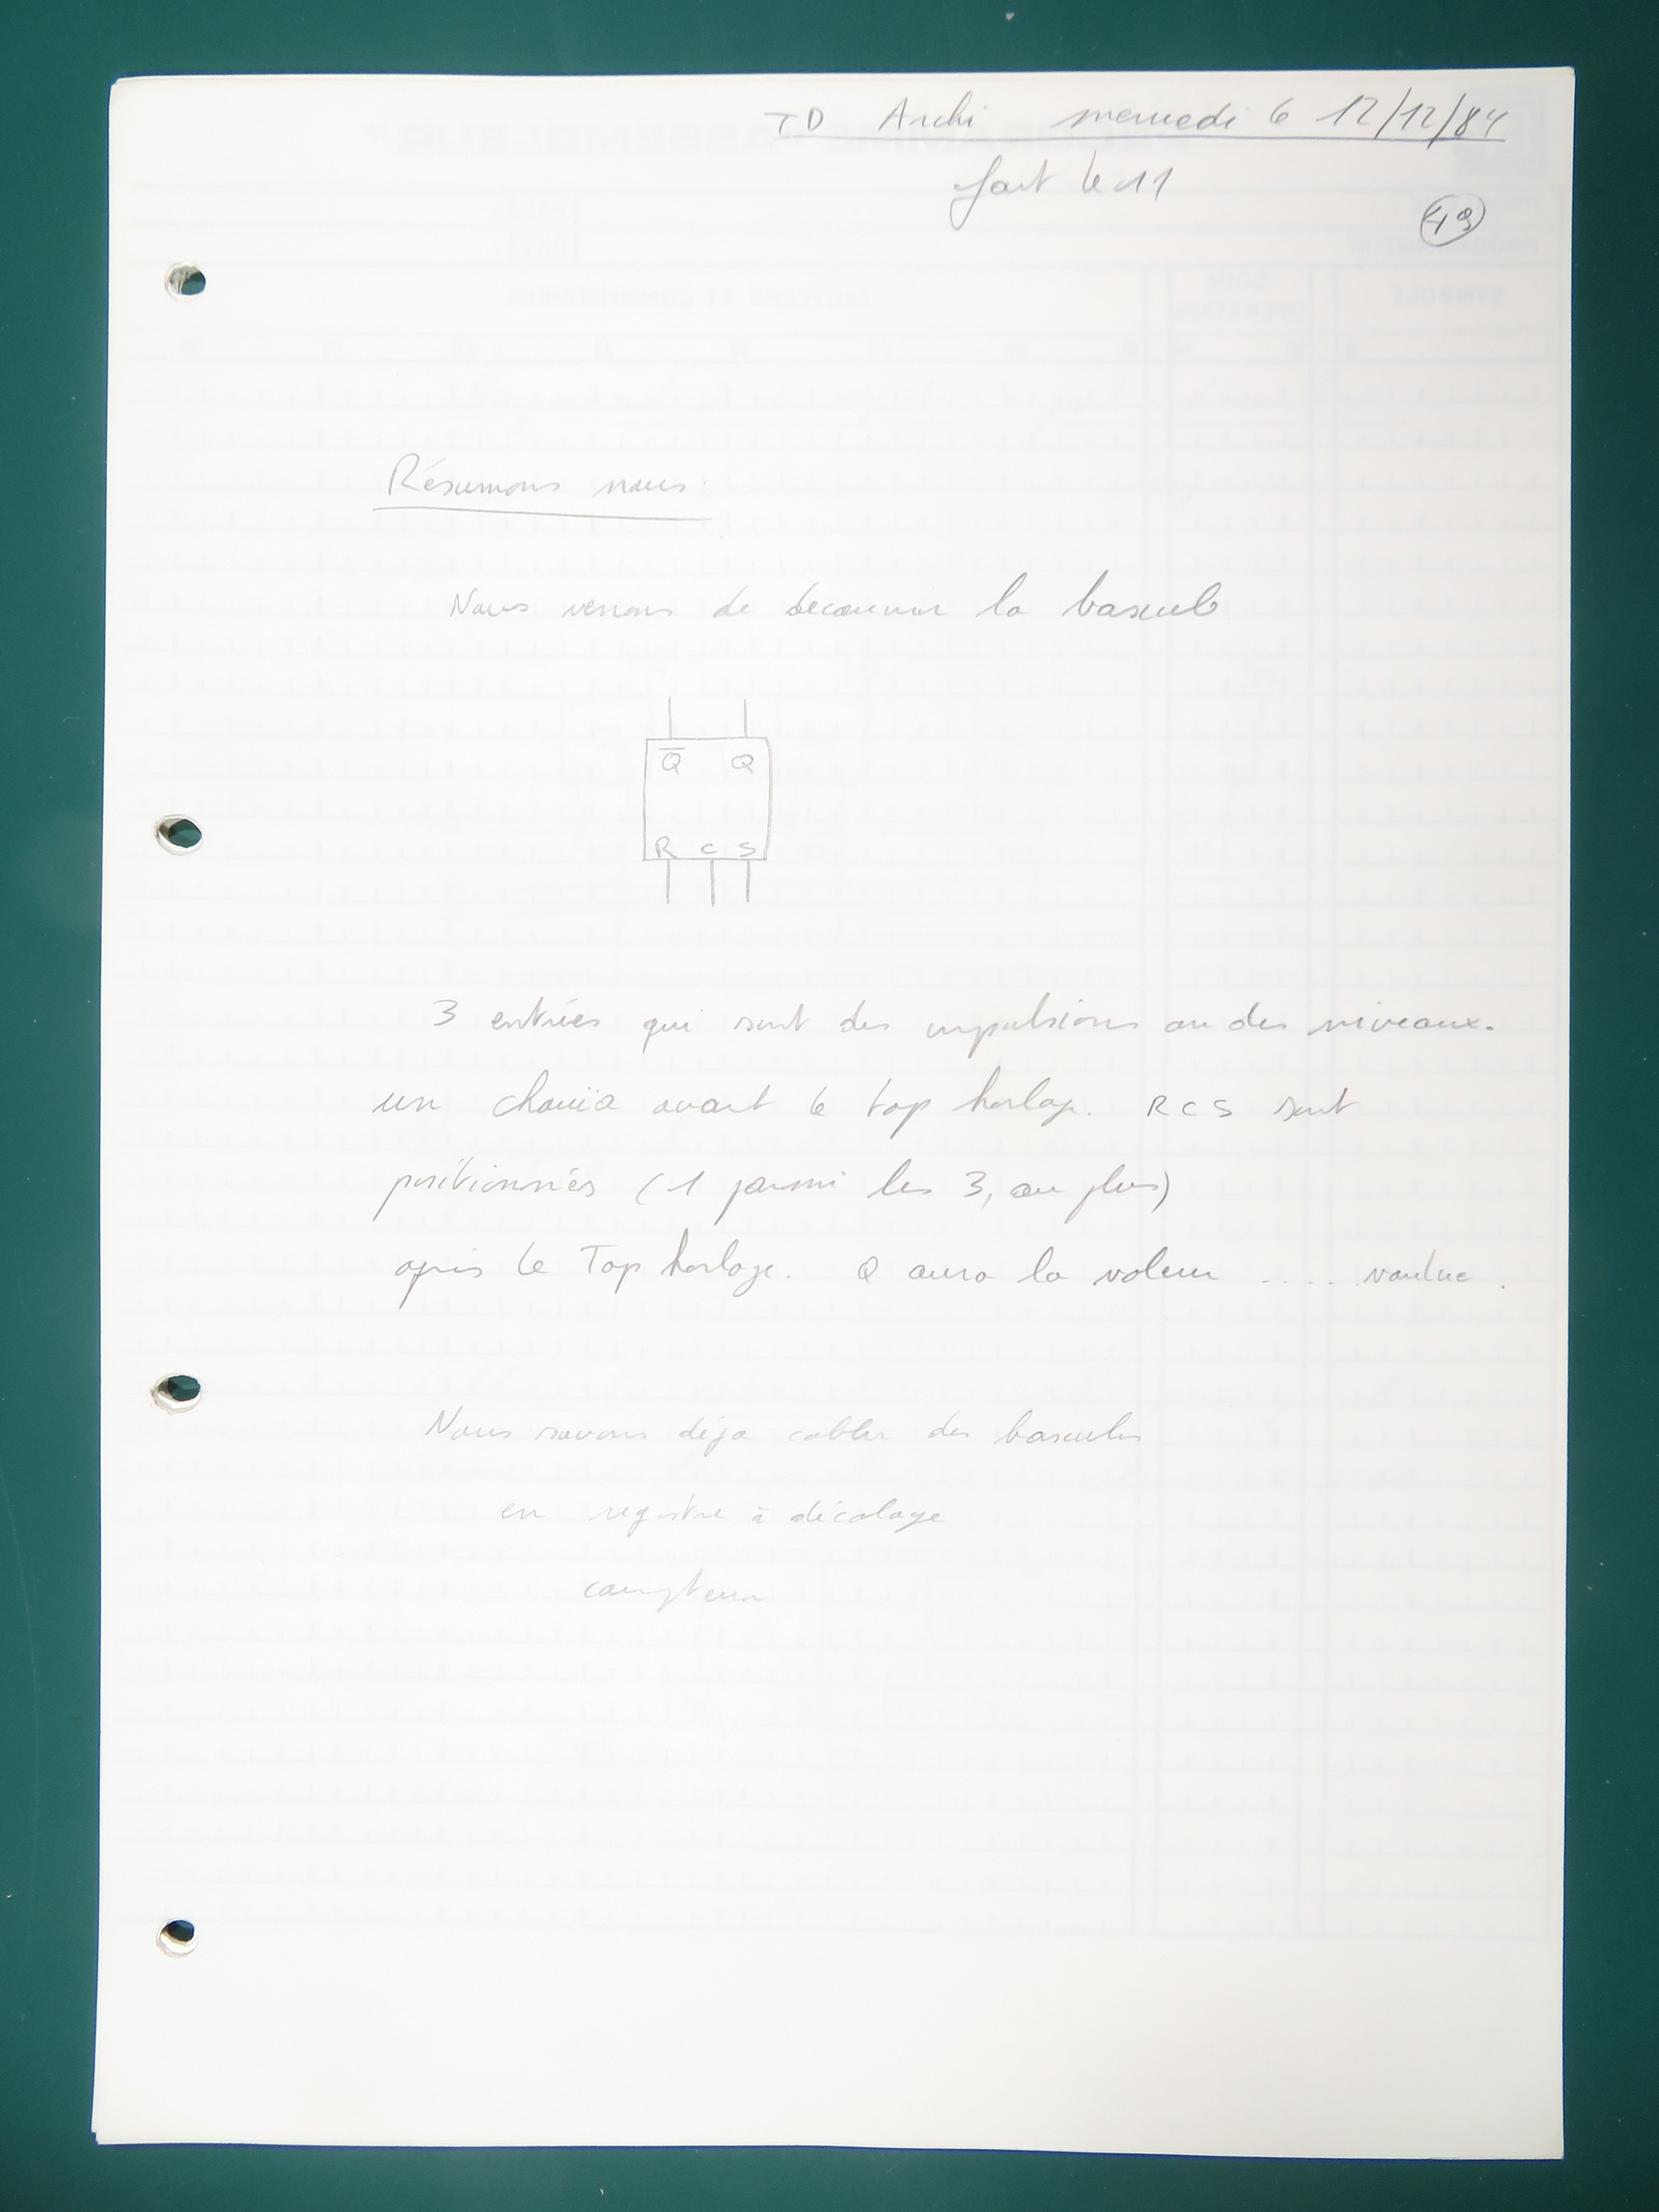 TD Archi mercredi le 12/12/84
fait le 11
49
Résumons nous:
Nous venons de découvrir la bascule
Q̅ Q
R C S
3 entrées qui sont des impulsions ou des niveaux.
un chouïa avant le top horloge. R C S sont
positionnés (1 parmi les 3, au plus)
après le Top horloge. Q aura la valeur .... voulue.
Nous savons déja cabler des bascules
en registre à décalage
compteur